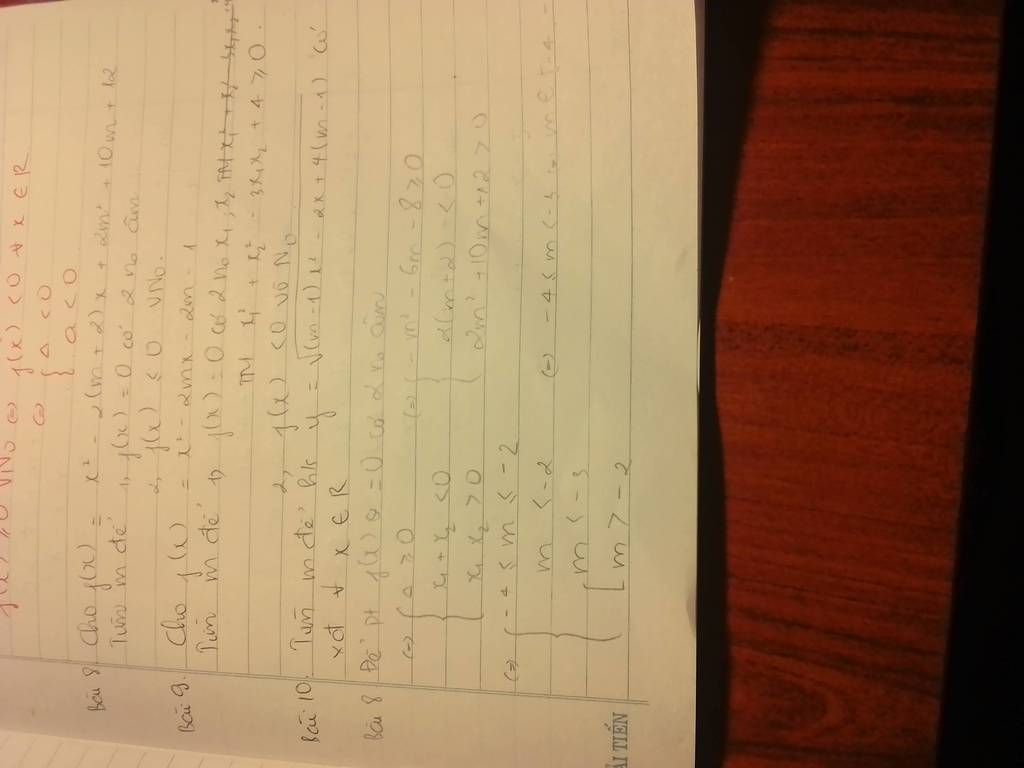 f(x) ≥ 0 VNo ⇔ f(x) < 0 ∀ x ∈ R
⇔ { Δ < 0
a < 0
Bài 8. Cho f(x) = x² - 2(m+2)x + 2m² + 10m + 12
Tìm m để 1, f(x) = 0 có 2 no âm
2, f(x) < 0 VNo.
Bài 9. Cho f(x) = x² - 2mx - 2m - 1
Tìm m để 1, f(x) = 0 có 2 no x₁, x₂
TM x₁² + x₂² - 3x₁x₂ + 4 ≥ 0.
2, f(x) < 0 Vô No
Bài 10. Tìm m để y = √(m-1)x² - 2x + 4(m-1) có
xđ ∀ x ∈ R
Bài 8 Để pt f(x) = 0 có 2 no âm
⇔ { Δ ≥ 0 ⇔ { -m² - 6m - 8 ≥ 0
x₁ + x₂ < 0 2(m+2) < 0
x₁ x₂ > 0 2m² + 10m + 12 > 0
⇔ { -4 ≤ m ≤ -2
m < -2 ⇔ -4 ≤ m < -3 m ∈ [-4
[ m < -3
m > -2
ẢI TIẾN